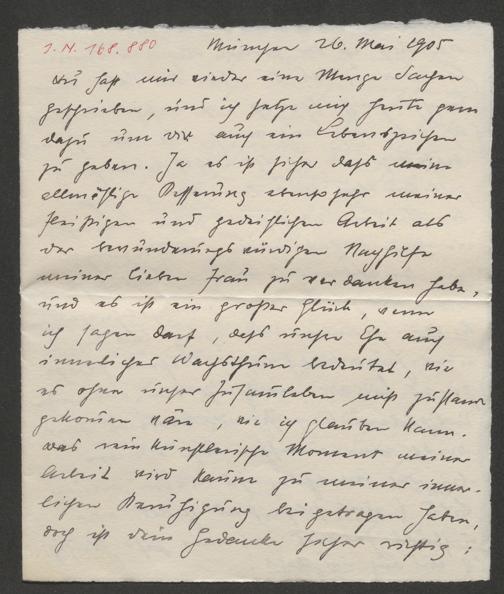 I. N. 168.880
München 26. Mai 1905
Du hast mir wieder eine Menge Sachen
geschrieben, und ich setze mich heute gern
dazu um Dir auch ein Lebenszeichen
zu geben. Ja es ist sicher daß meine
allmählige Besserung ebensosehr meiner
fleißigen und gedeihlichen Arbeit als
der bewunderungswürdigen Nachhilfe
meiner lieben Frau zu verdanken habe,
und es ist ein großes Glück, wenn
ich sagen darf, daß unsre Ehe auch
innerliches Wachsthum bedeutet, wie
es ohne unser Zusammenleben nicht zustande
gekommen wäre, wie ich glauben kann.
das rein künstlerische Moment meiner
Arbeit wird kaum zu meiner inner-
lichen Beruhigung beigetragen haben,
doch ist dein Gedanke sicher richtig: